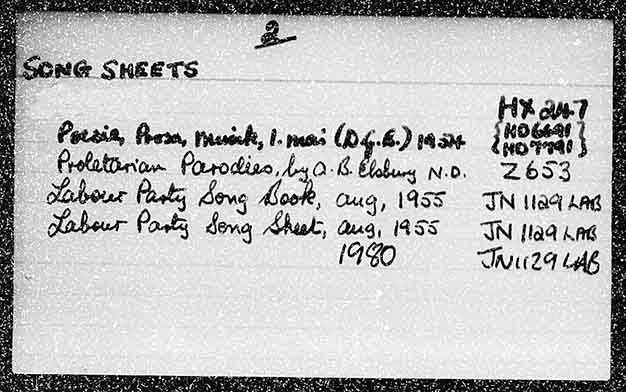 2
SONG SHEETS
HX 247
Poesia, Prosa, Musick, 1. mai (D.G.B.) 1954 {HD6691
{HD7791}
Proletarian Parodies, by A.B. Elsbury N.D. Z653
Labour Party Song Book, Aug, 1955 JN 1129 LAB
Labour Party Song Sheet, Aug, 1955 JN 1129 LAB
1980 JN1129 LAB